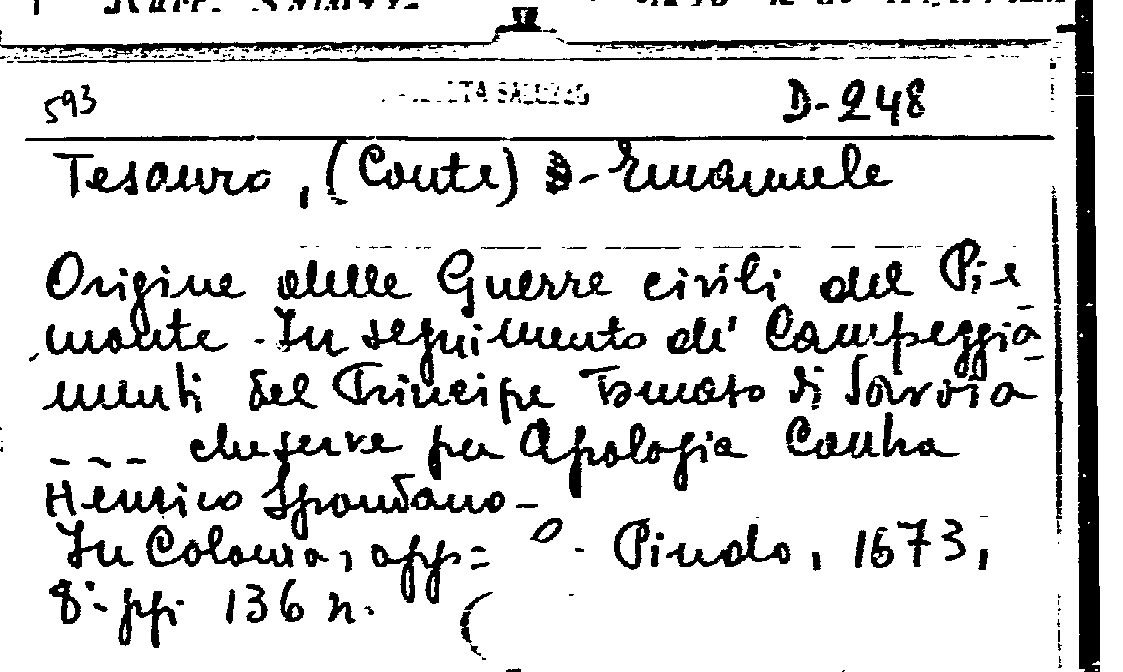 593 D-248
Tesauro, (Conte) D- Emanuele
Origine delle Guerre civili del Pie
monte - In seguimento de' Campeggia-
menti del Principe Tomaso di Savoia-
--- che serve per Apologia Contra
Henrico Spondano-
In Colonia, app= º. Pindo, 1673,
8°- pp. 136 n.